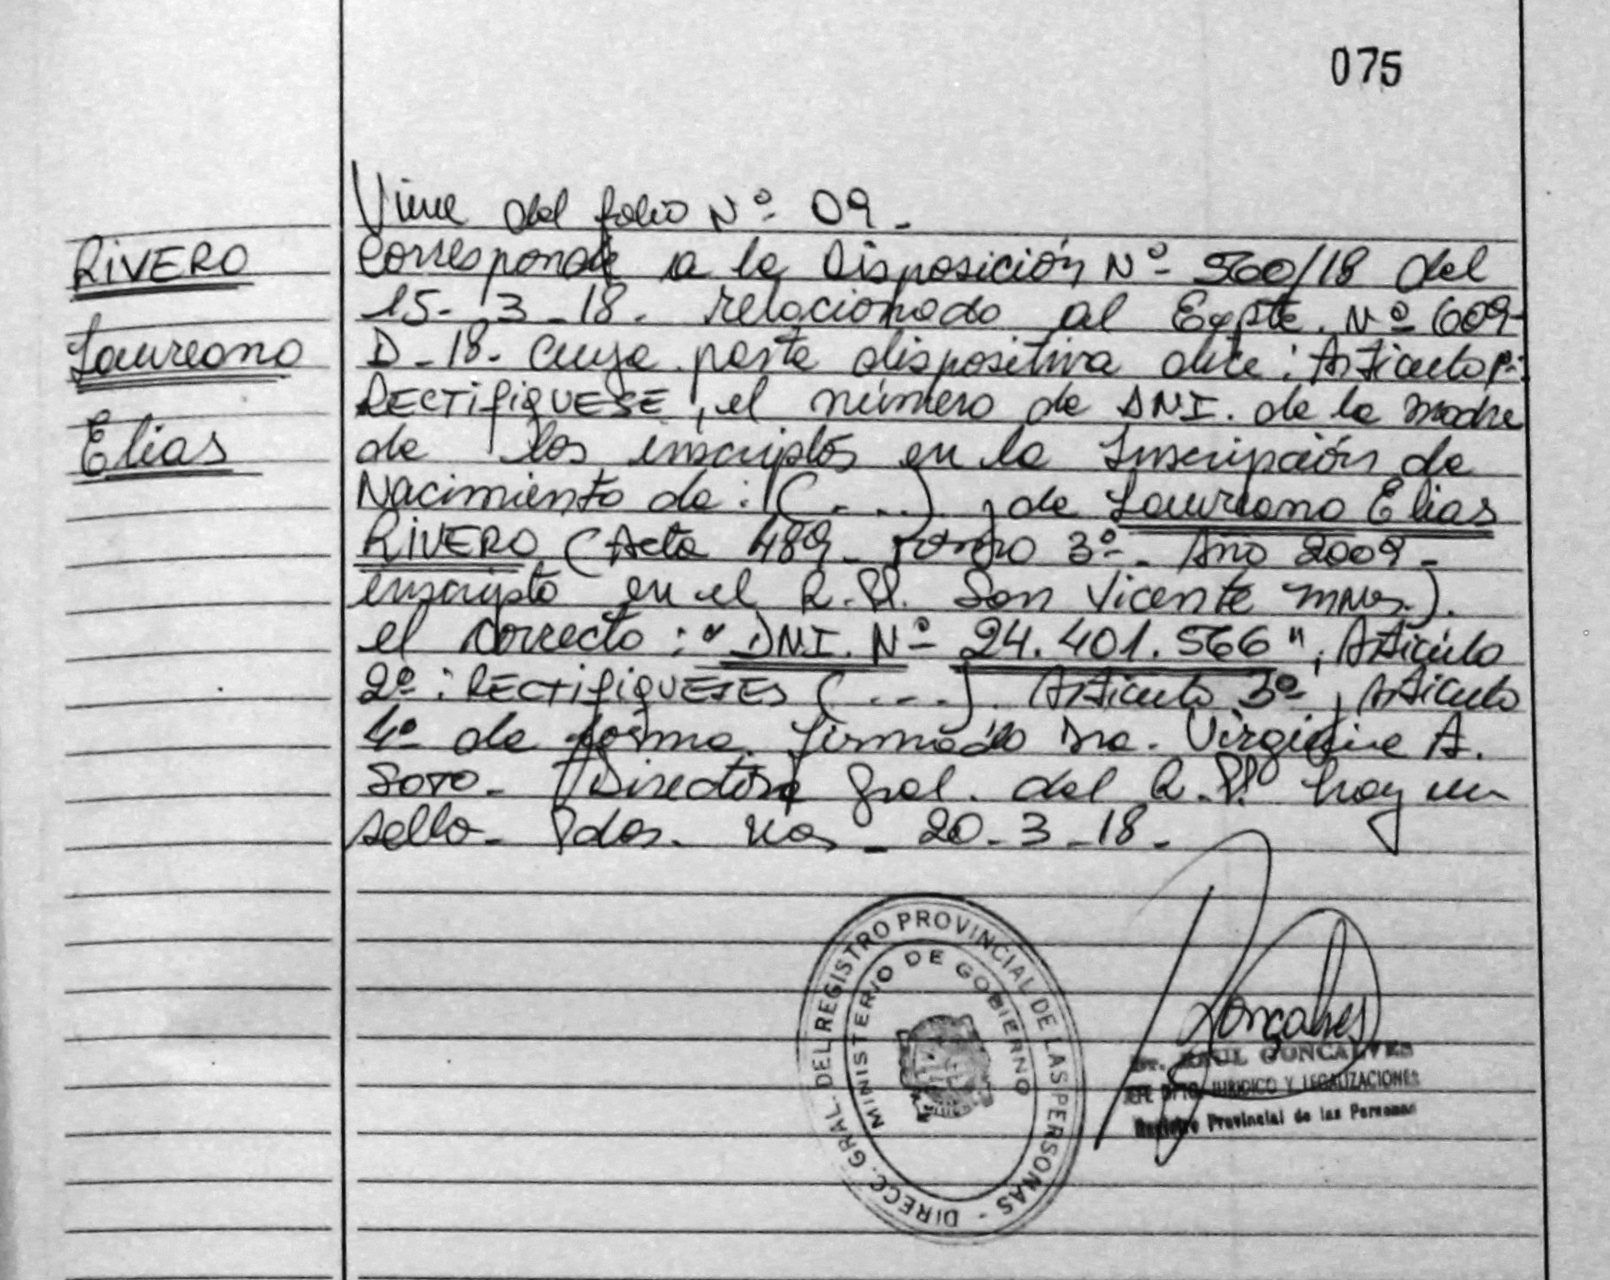 075
Viene del folio Nº 09.
RIVERO
Laureano
Elias
Corresponde a la Disposición Nº 560/18 del
15-3-18. relacionado al Expte. Nº 609-
D-18. Cuya parte dispositiva dice: Artículo 1º:
RECTIFIQUESE, el número de DNI. de la madre
de los inscriptos en la Inscripción de
Nacimiento de: (...), de Laureano Elias
RIVERO (Acta 489- Tomo 3º- Año 2009-
inscripto en el R.P. San Vicente Mnes.).
el correcto: "DNI. Nº 24.401.566", Artículo
2º: RECTIFIQUESES (...). Artículo 3º, Artículo
4º de forma. firmado Dra. Virginia A.
Soto. Directora Gral. del R.P. hay un
sello. Pdas. 20-3-18.
DIRECC. GRAL. DEL REGISTRO PROVINCIAL DE LAS PERSONAS -
MINISTERIO DE GOBIERNO
Goncalves
Dr. RAUL GONCALVES
JEFE DPTO. JURIDICO Y LEGALIZACIONES
Registro Provincial de las Personas